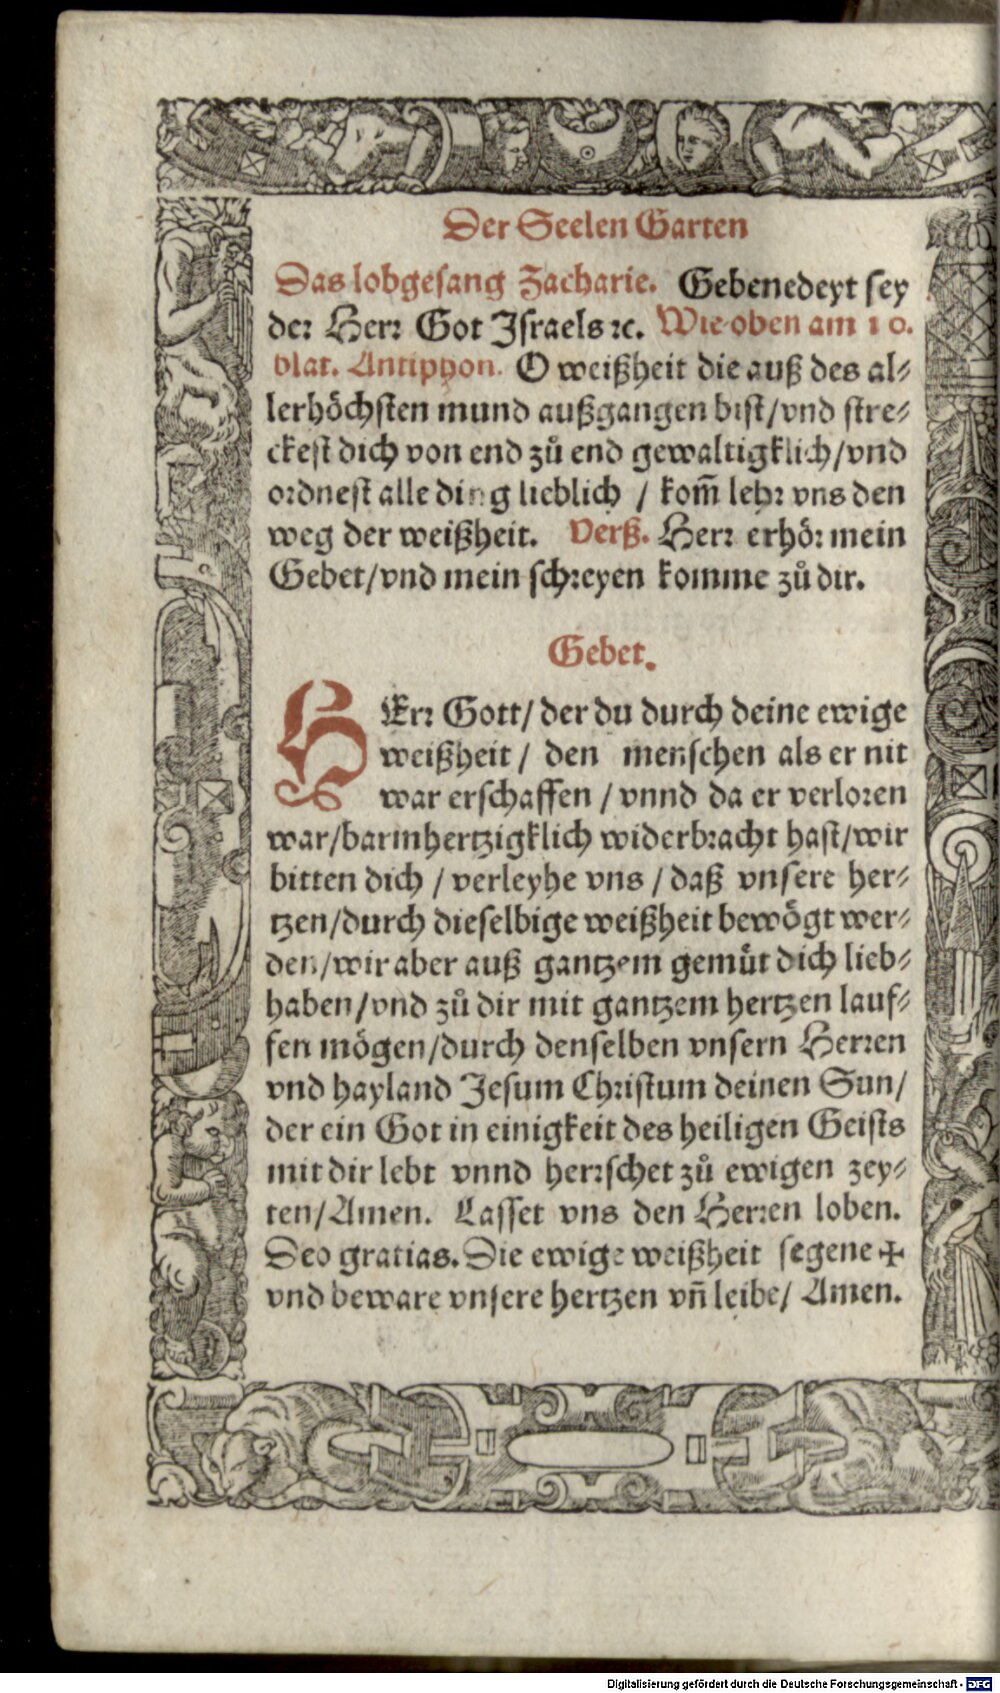 Der Seelen Garten
Das lobgesang Zacharie. Gebenedeyt sey
der Herr Got Israels ꝛc. Wie oben am 10.
blat. Antiphon. O weißheit die auß des al-
lerhöchsten mund außgangen bist/vnd stre-
ckest dich von end zů end gewaltigklich/vnd
ordnest alle ding lieblich / kom̃ lehr vns den
weg der weißheit. Verß. Herr erhör mein
Gebet/vnd mein schreyen komme zů dir.
Gebet.
HErr Gott/ der du durch deine ewige
weißheit / den menschen als er nit
war erschaffen / vnnd da er verloren
war/barmhertzigklich widerbracht hast/wir
bitten dich / verleyhe vns / daß vnsere her-
tzen/durch dieselbige weißheit bewögt wer-
den/wir aber auß gantzem gemüt dich lieb-
haben/vnd zů dir mit gantzem hertzen lauf-
fen mögen/durch denselben vnsern Herren
vnd hayland Jesum Christum deinen Sun/
der ein Got in einigkeit des heiligen Geists
mit dir lebt vnnd herrschet zů ewigen zey-
ten/Amen. Lasset vns den Herren loben.
Deo gratias. Die ewige weißheit segene ✠
vnd beware vnsere hertzen vñ leibe/ Amen.
Digitalisierung gefördert durch die Deutsche Forschungsgemeinschaft - DFG